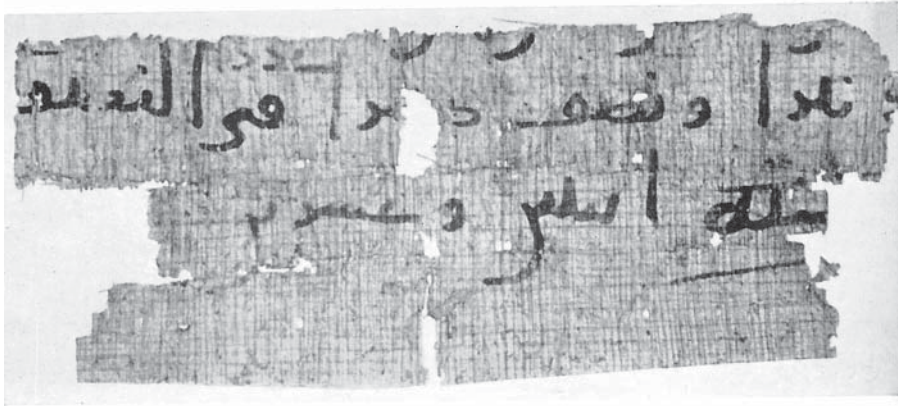 دينرا ونصف دينرا في القعدة
سنة اثنين وعشرين